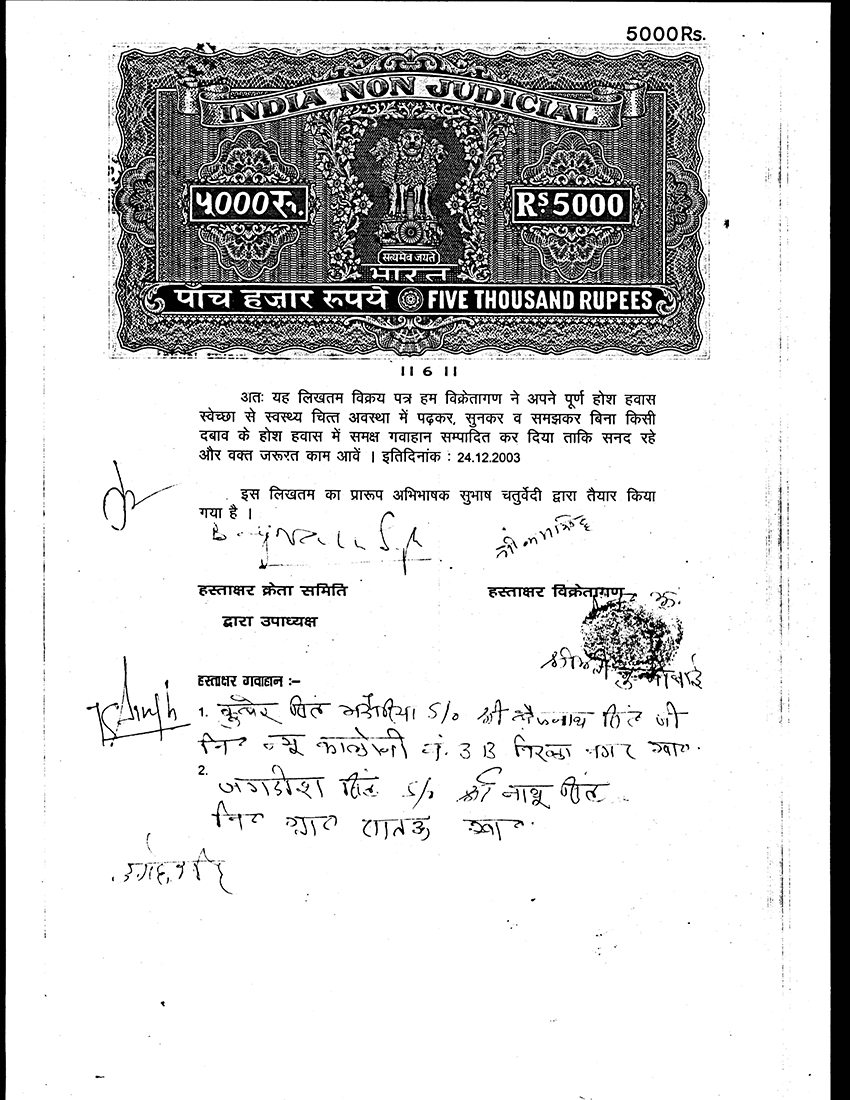 5000Rs.
INDIA NON JUDICIAL
५000रु. Rs 5000
सत्यमेव जयते
भारत
पाँच हजार रुपये FIVE THOUSAND RUPEES
।। 6 ।।
अतः यह लिखतम विक्रय पत्र हम विक्रेतागण ने अपने पूर्ण होश हवास
स्वेच्छा से स्वस्थ्य चित्त अवस्था में पढ़कर, सुनकर व समझकर बिना किसी
दबाव के होश हवास में समक्ष गवाहान सम्पादित कर दिया ताकि सनद रहे
और वक्त जरूरत काम आवें । इतिदिनांक : 24.12.2003
इस लिखतम का प्रारूप अभिभाषक सुभाष चतुर्वेदी द्वारा तैयार किया
गया है ।
हस्ताक्षर क्रेता समिति हस्ताक्षर विक्रेतागण
द्वारा उपाध्यक्ष
श्रीमती
हस्ताक्षर गवाहान :–
1. सिंह S/o श्री सिंह जी
नि० न्यू कालोनी नं. 3 B नगर
2. जगदीश सिंह S/o श्री नाथू सिंह
नि०